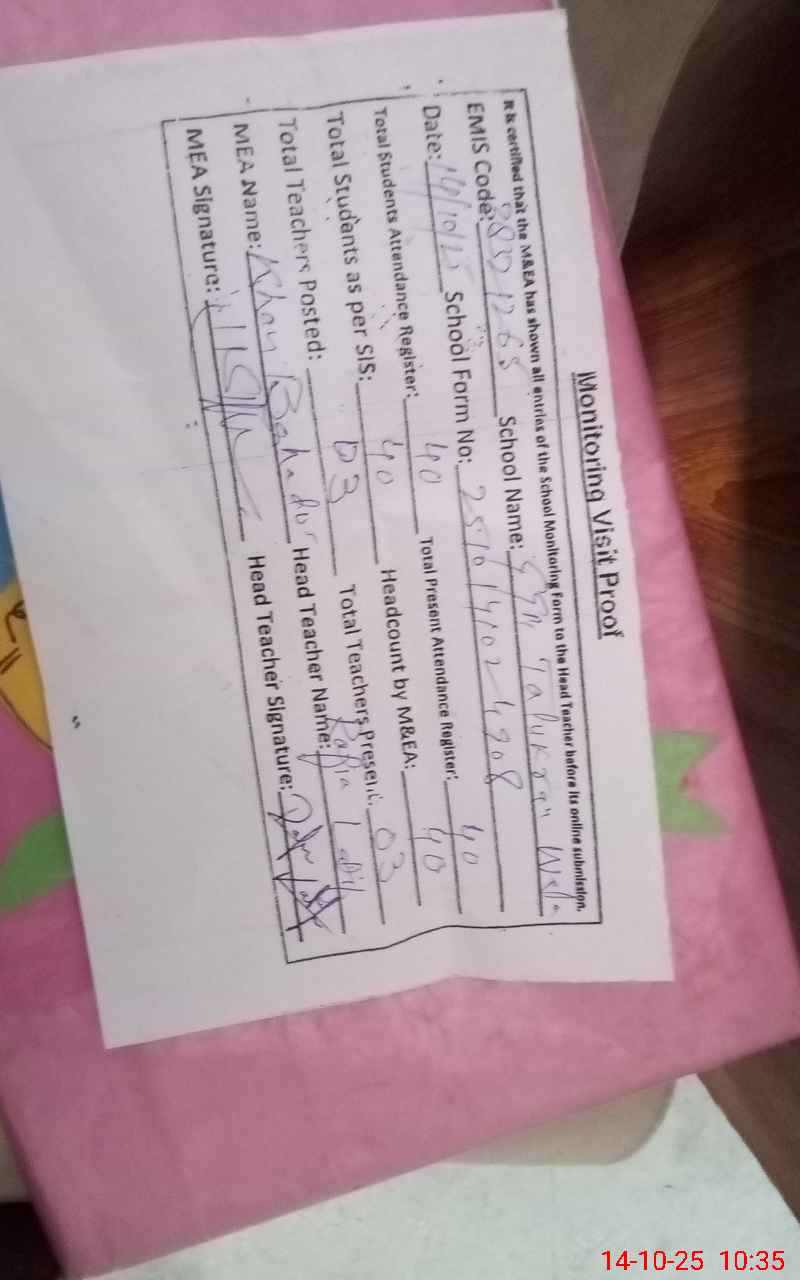 Monitoring Visit Proof
It is certified that the M&EA has shown all entries of the School Monitoring Form to the Head Teacher before its online submission.
EMIS Code: School Name:
Date: 14/10/25 School Form No:
Total Students Attendance Register: 40 Total Present Attendance Register: 40
Total Students as per SIS: 40 Headcount by M&EA: 40
Total Teachers Posted: 03 Total Teachers Present: 03
MEA Name: Khan Bahadur Head Teacher Name:
MEA Signature: Head Teacher Signature:
14-10-25 10:35